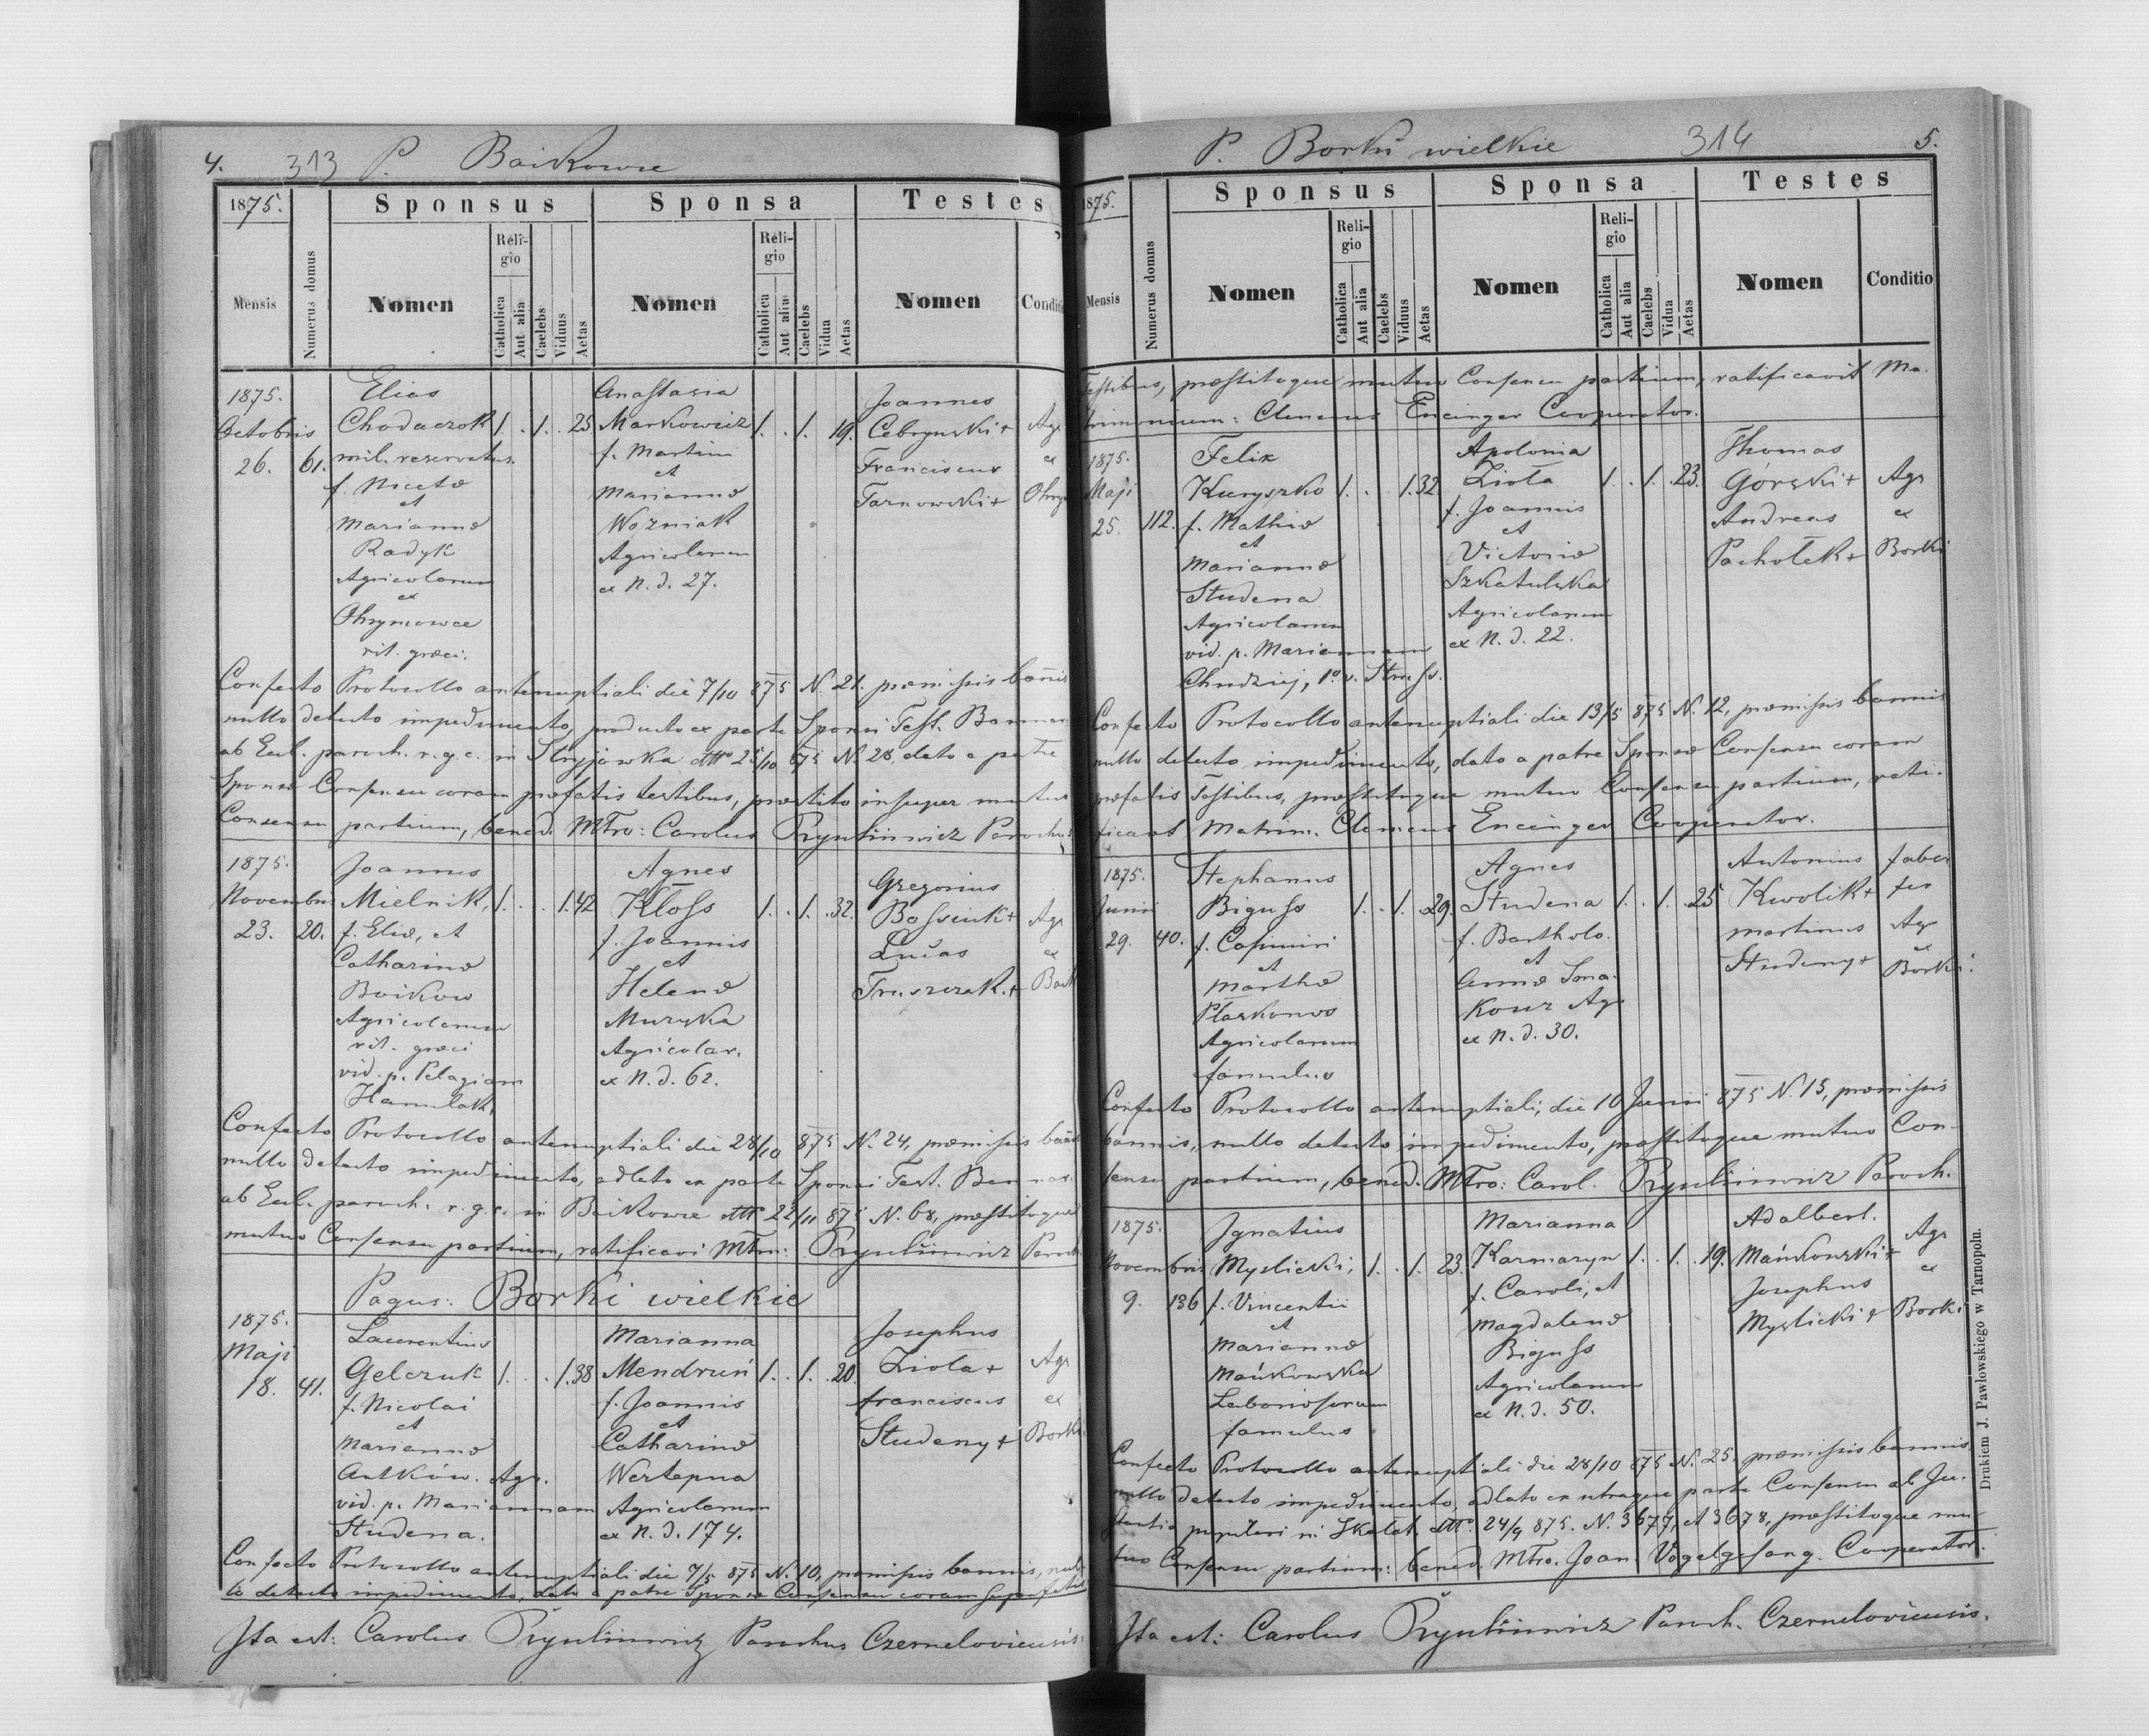 4. 313 P. Baikowce
1875. Sponsus Sponsa Testes
Mensis Numerus domus Nomen Religio Catholica Aut alia Caelebs Viduus Aetas Nomen Religio Catholica Aut alia Caelebs Vidua Aetas Nomen Conditi
1875. Elias Anastasia Joannes
Octobris Chodaczok 1. . 1. . 25 Markowicz 1. . 1. 19. Cebrynski + Agr
26. 61. mil. reservatus. f. Martini Franciscus ex
f. Nicetae et Tarnowski +
et Mariannae
Mariannae Wozniak
Radyk Agricolarum
Agricolarum ex N. d. 27.
ex
Ohrymowce
rit. graeci.
Confecto Protocollo antenuptiali die 7/10 875 N. 21. praemissis bannis
nullo detecto impedimento, producto ex parte Sponsi Test. Bannor.
ab Eccl. paroch. r. g. c. in Stryjówka 25/10 875 N. 28, dato a patre
Sponsae Consensu coram praefatis testibus, praestito insuper mutuo
Consensu partium, bened. Mtro: Carolus Parochus
1875. Joannes Agnes Gregorius
Novembris Mielnik, 1. . . 1. 42 Kloss 1. . 1. . 32. + Agr
23. 20. f. Eliae, et f. Joannis Lucas ex
Catharinae et Truszczak. +
Boikow Helenae
Agricolarum Muzyka
rit. graeci Agricolar.
vid. p. Pelagiam ex N. d. 62.
Hamulak.
Confecto Protocollo antenuptiali die 28/10 875 N. 24, praemissis bannis
nullo detecto impedimento, adlato ex parte Sponsi Test. Bannor.
ab Eccl. paroch. r. g. c. in Baikowce 22/11 875 N. 68, praestitoque
mutuo Consensu partium, ratificavi Mtrm: Paroch.
Pagus: Borki wielkie
1875. Laurentius Marianna Josephus
Maji Gelczuk 1. . . 1. 38 Mendruń 1. . 1. . 20. Ziola + Agr
18. 41. f. Nicolai f. Joannis franciscus ex
et et Studeny + Borki
Mariannae Catharinae
Antków. Agr. Wertepna
vid. p. Mariannam Agricolarum
Studena. ex N. d. 174.
Confecto Protocollo antenuptiali die 7/5 875 N. 10, praemissis bannis, nul-
lo detecto impedimento, dato a patre Sponsae Consensu coram
Ita est: Carolus Parochus Czerneloviensis.
P. Borki wielkie 314 5.
1875. Sponsus Sponsa Testes
Mensis Numerus domus Nomen Religio Catholica Aut alia Caelebs Viduus Aetas Nomen Religio Catholica Aut alia Caelebs Vidua Aetas Nomen Conditio
Testibus, praestitoque mutuo Consensu partium, ratificavit Ma-
trimonium: Clemens Encinger Cooperator.
1875. Felix Apolonia Thomas
Maji Kuryszko 1. . . 1. 32 Ziola 1. . 1. . 23. Górski + Agr
25. 112. f. Mathiae f. Joannis Andreas ex
et et Pacholek + Borki
Mariannae Victoriae
Studena Szkatulska
Agricolarum Agricolarum
vid. p. Mariannam ex N. d. 22.
Chudziej, 1o v.
Confecto Protocollo antenuptiali die 13/5 875 N. 12, praemissis bannis
nullo detecto impedimento, dato a patre Sponsae Consensu coram
praefatis Testibus, praestitoque mutuo Consensu partium, rati-
ficavit Matrim. Clemens Encinger Cooperator.
1875. Stephanus Agnes Antonius faber
Junii Biguss 1. . 1. . 29. Studena 1. . 1. . 25 Kwolik +
29. 40. f. Casimiri f. Bartholo. martinus Agr
et et Studeny + ex
Marthae Annae Sma- Borki.
kowz Agr
Agricolarum ex N. d. 30.
famulus
Confecto Protocollo antenuptiali, die 10 Junii 875 N. 15, praemissis
bannis, nullo detecto impedimento, praestitoque mutuo Con-
sensu partium, bened. Mtro: Carol. Paroch.
1875. Ignatius Marianna Adalbert. Agr
Novembris Myslicki; 1. . 1. 23. Karmazyn 1. . 1. . 19. Mańkowski + ex
9. 136 f. Vincentii f. Caroli, et Josephus
et Magdalenae Myslicki + Borki
Mariannae Biguss
Mańkowska Agricolarum
Laboriosorum ex N. d. 50.
famulus
Confecto Protocollo antenuptiali die 28/10 875 N. 25. praemissis bannis
nullo detecto impedimento, adlato ex utraque parte Consensu ab Ju-
dicio pupilari in Skalat 24/9 875. N. 3677, et 3678, praestitoque mu-
tuo Consensu partium: bened. Mtro. Joan. Vogelgesang. Cooperator.
Ita est: Carolus Paroch. Czerneloviensis.
Drukiem J. Pawłowskiego w Tarnopolu.